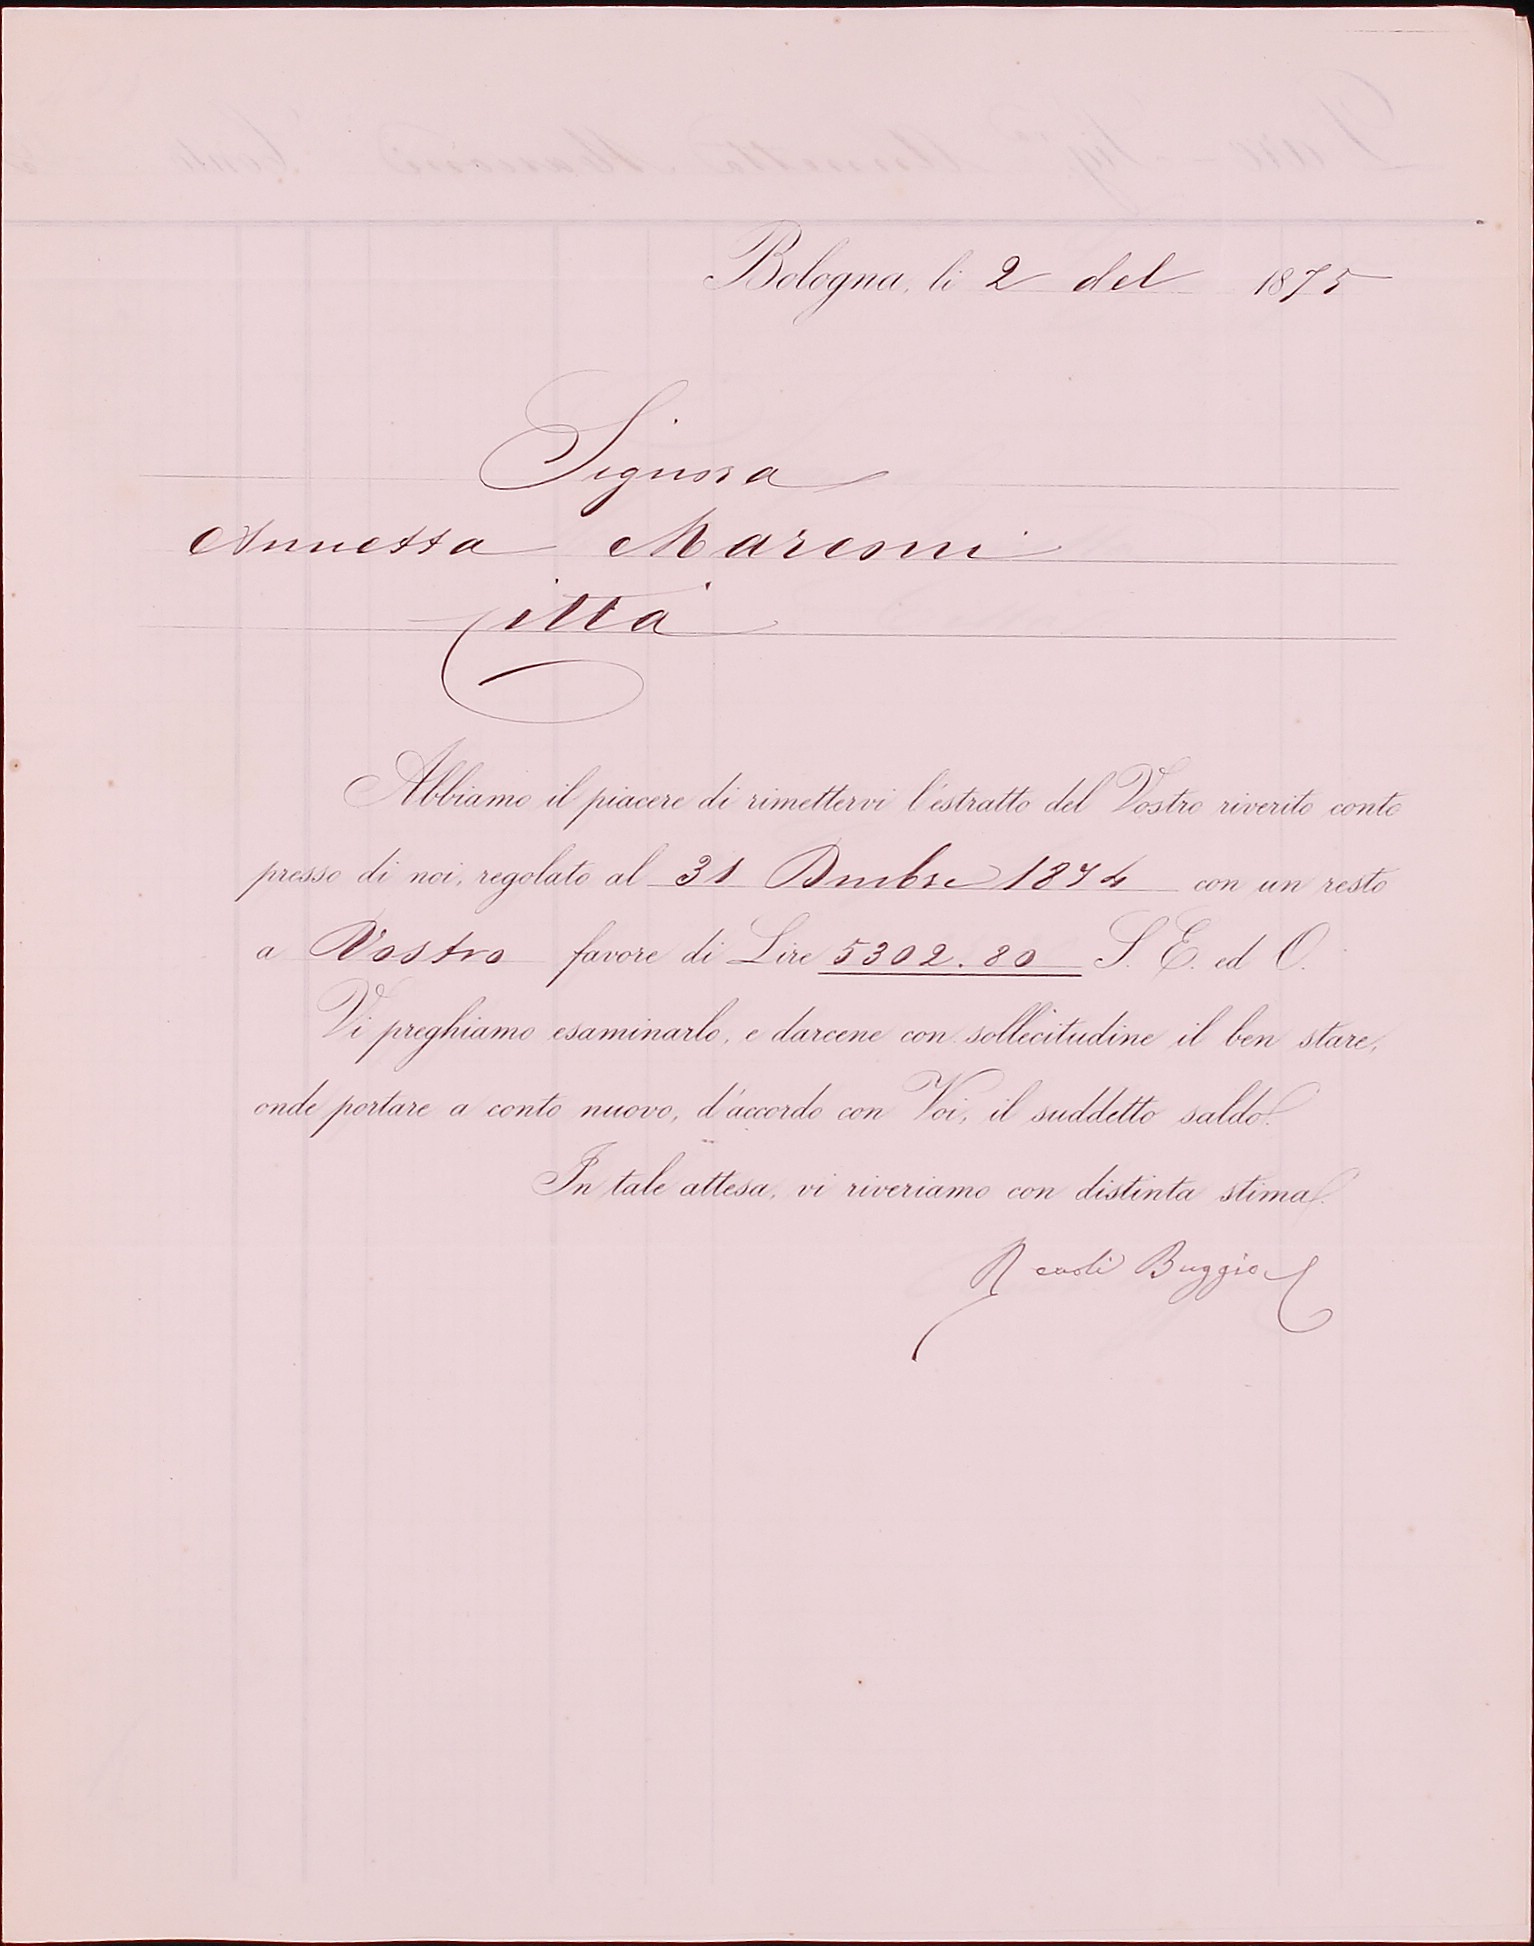 Bologna, li 2 del 1875
Signora
Annetta Marconi
Città
Abbiamo il piacere di rimettervi l'estratto del Vostro riverito conto
presso di noi, regolato al 31 Dmbre 1874 con un resto
a Vostro favore di Lire 5302.80 S. E. ed O.
Vi preghiamo esaminarlo, e darcene con sollecitudine il ben stare,
onde portare a conto nuovo, d'accordo con Voi, il suddetto saldo.
In tale attesa, vi riveriamo con distinta stima.
Buggio